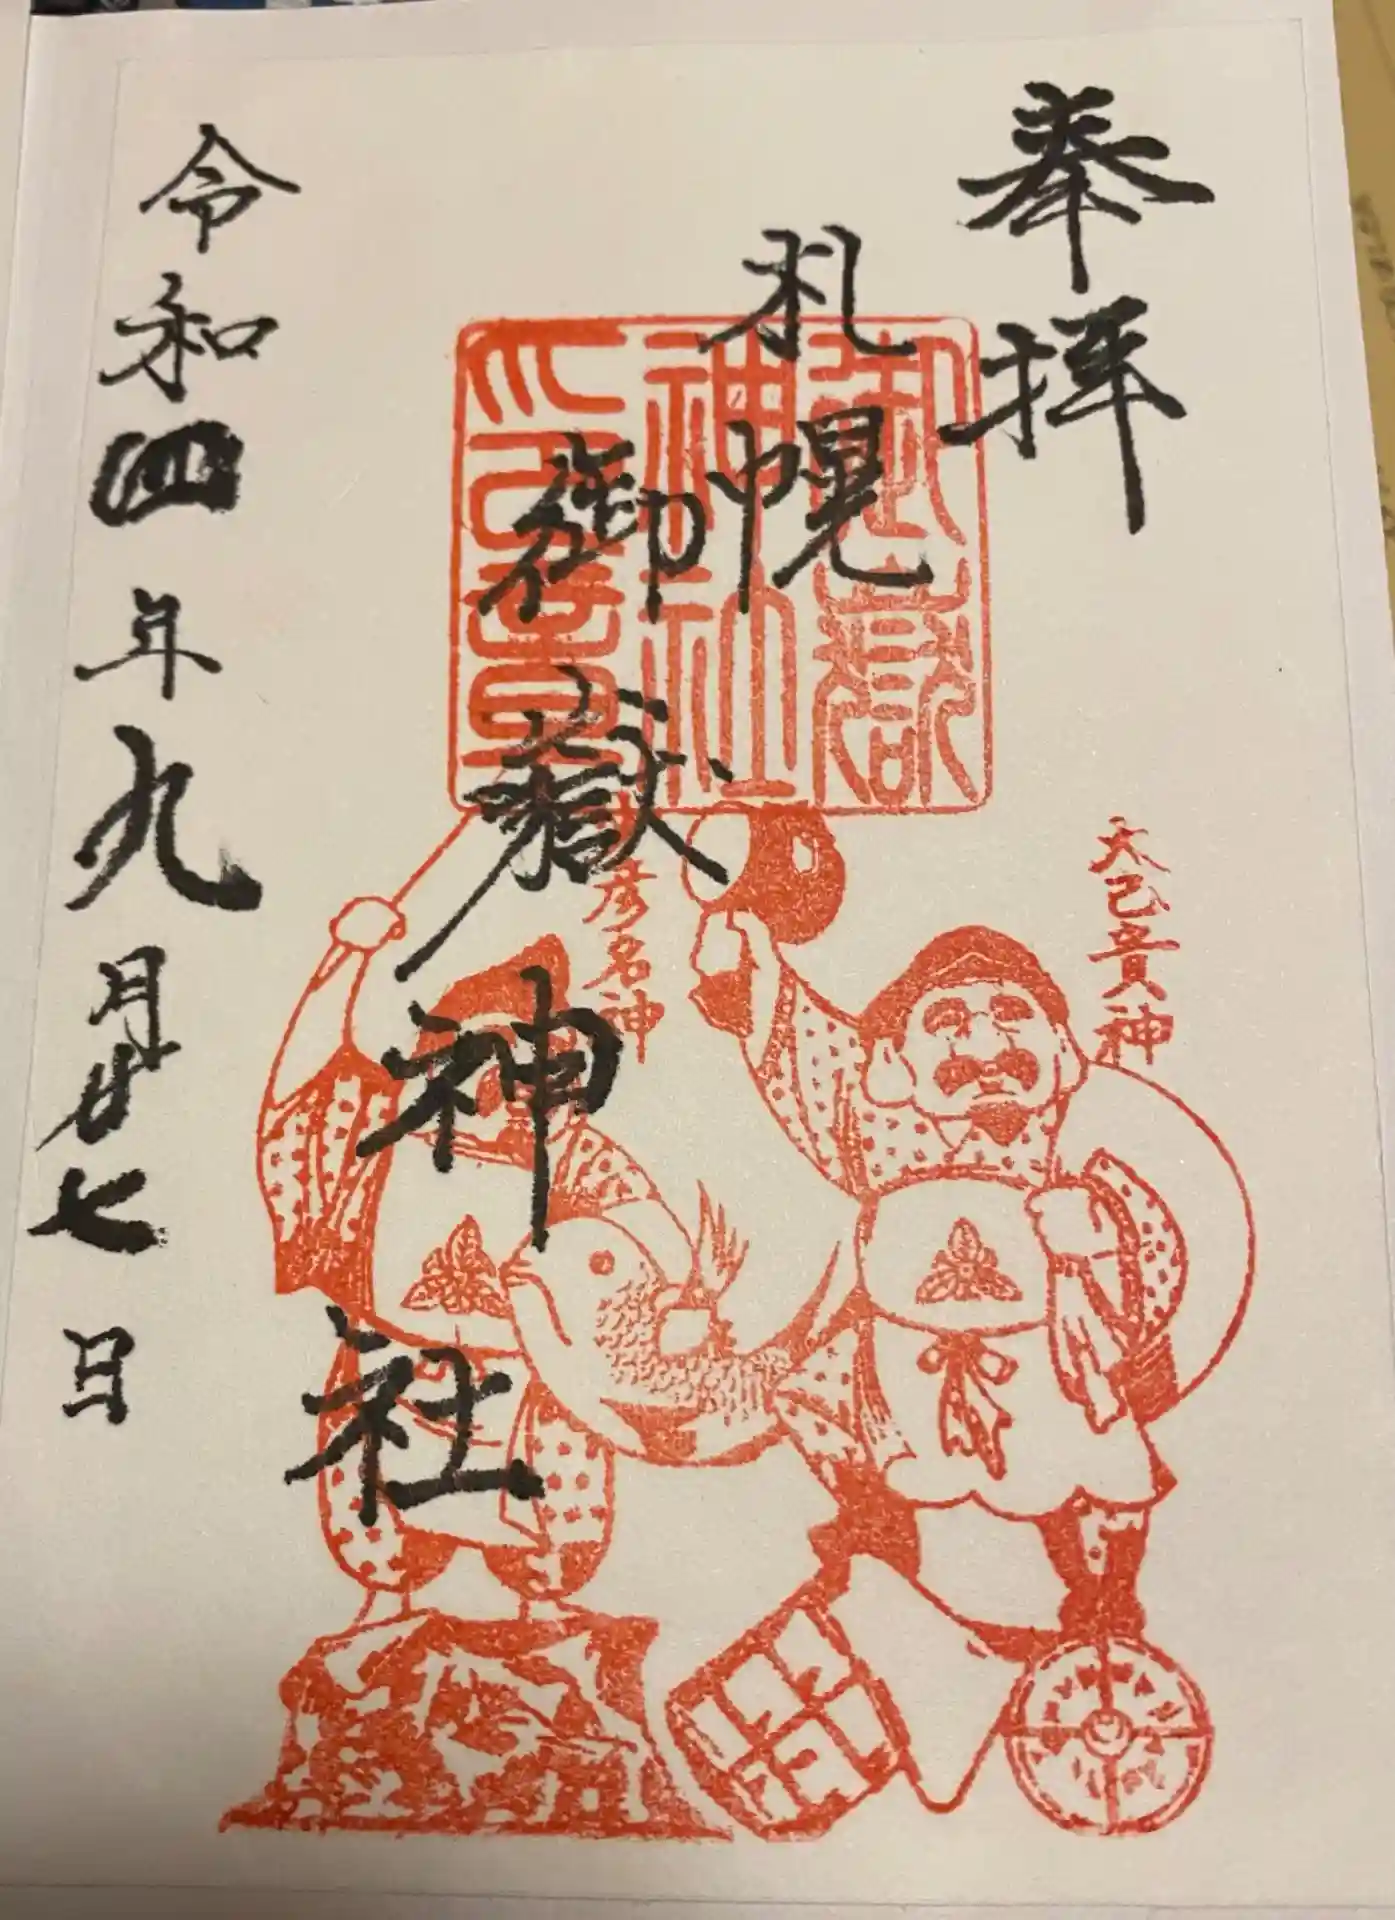 奉拝
札幌
御嶽神社
令和四年九月廿七日
御嶽
神社
印章
大己貴神
彦名神